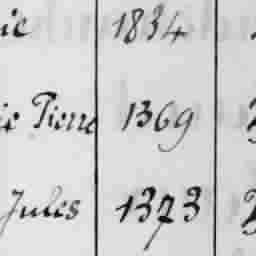 ie 1834
ie Pierre 1369
Jules 1373